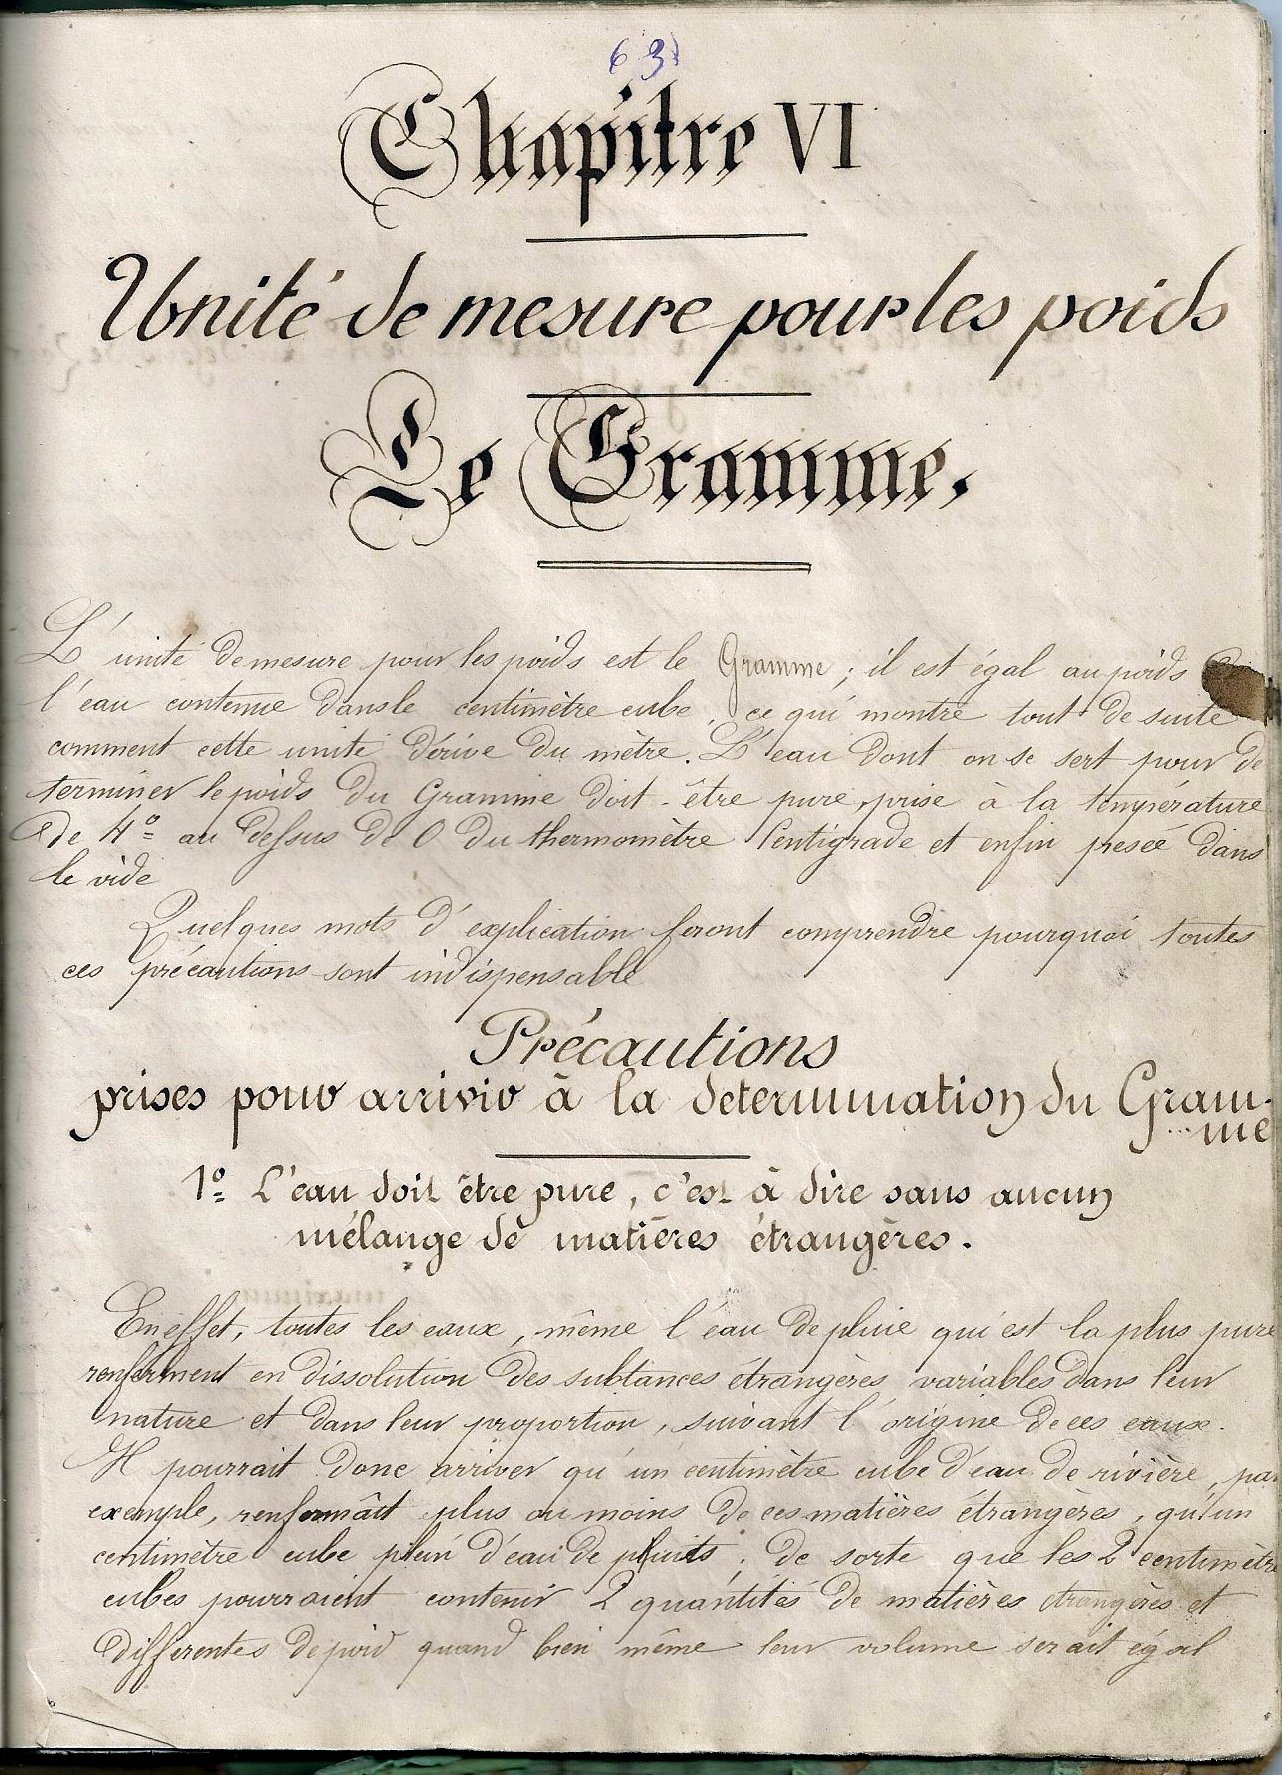 63
Chapitre VI
Unité de mesure pour les poids
Le Gramme.
L'unité de mesure pour les poids est le Gramme ; il est égal au poids
l'eau contenue dans le centimètre cube, ce qui montre tout de suite
comment cette unité dérive du mètre. L'eau dont on se sert pour dé
terminer le poids du Gramme doit être pure, prise à la température
de 4° au dessus de 0 du thermomètre Centigrade et enfin pesée dans
le vide
Quelques mots d'explication feront comprendre pourquoi toutes
ces précautions sont indispensable
Précautions
prises pour arriver à la determination du Gram-
me
1° L'eau doit être pure, c'est à dire sans aucun
mélange de matières étrangères.
En effet, toutes les eaux, même l'eau de pluie qui est la plus pure
renferment en dissolution des subtances étrangères variables dans leur
nature et dans leur proportion, suivant l'origine de ces eaux.
Il pourrait donc arriver qu'un centimètre cube d'eau de rivière, par
exemple, renfermât plus ou moins de ces matières étrangères, qu'un
centimètre cube plein d'eau de puits ; de sorte que les 2 centimètre
cubes pourraient contenir 2 quantités de matières étrangères et
differentes de poid quand bien même leur volume serait égal